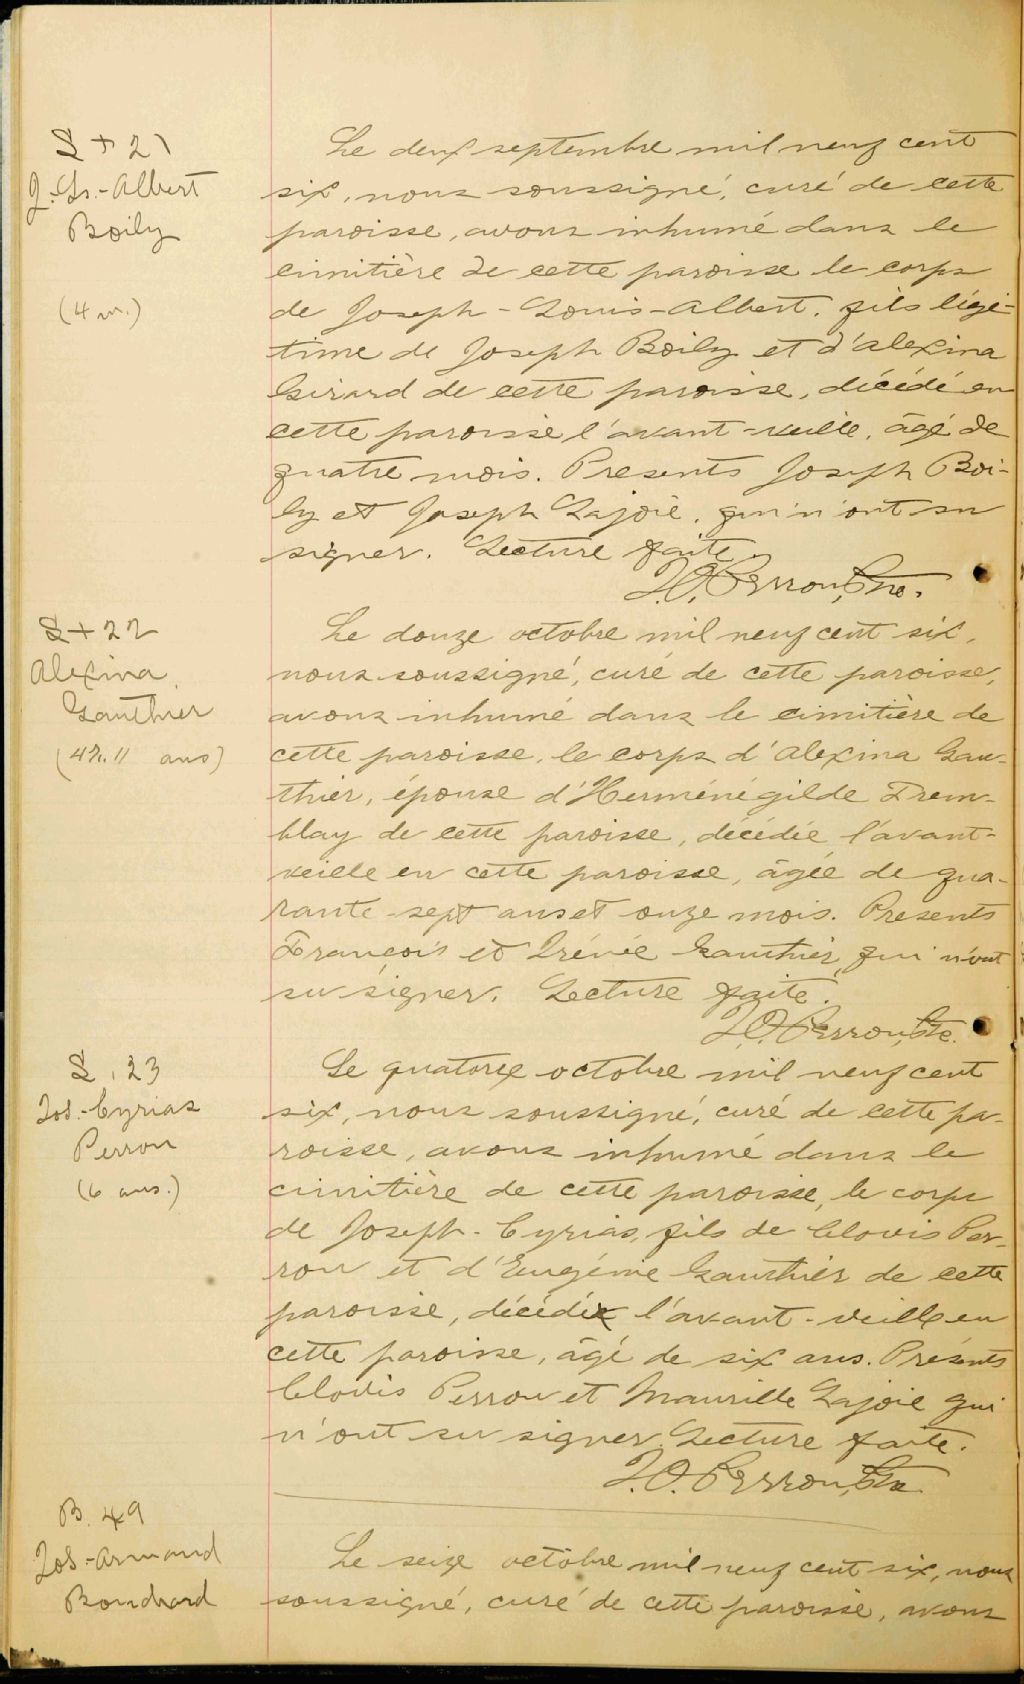 S + 21
J.-Ls.-Albert
Boily
(4 m.)
Le deux septembre mil neuf cent
six, nous soussigné, curé de cette
paroisse, avons inhumé dans le
cimitière de cette paroisse le corps
de Joseph-Louis-Albert, fils légi-
time de Joseph Boily et d'Alexina
Girard de cette paroisse, décédé en
cette paroisse l'avant-veille, âgé de
quatre mois. Presents Joseph Boi-
ly et Joseph Lajoie, qui n'ont su
signer. Lecture faite.
J.O. Perron, Ptre.
S + 22
Alexina
Gauthier
(47. 11 ans)
Le douze octobre mil neuf cent six,
nous soussigné, curé de cette paroisse,
avons inhumé dans le cimitière de
cette paroisse, le corps d'Alexina Gau-
thier, épouse d'Herménégilde Trem-
blay de cette paroisse, décédée l'avant-
veille en cette paroisse, âgée de qua-
rante-sept ans et onze mois. Presents
François et Irénée Gauthier, qui n'ont
su signer. Lecture faite.
J.O. Perron, Ptre.
S. 23
Jos.-Cyrias
Perron
(6 ans.)
Le quatorze octobre mil neuf cent
six, nous soussigné, curé de cette pa-
roisse, avons inhumé dans le
cimitière de cette paroisse, le corps
de Joseph-Cyrias, fils de Clovis Per-
ron et d'Eugénie Gauthier de cette
paroisse, décédé l'avant-veille en
cette paroisse, âgé de six ans. Présents
Clovis Perron et Maurille Lajoie qui
n'ont su signer. Lecture faite.
J.O. Perron, Ptre
B. 49
Jos.-Armand
Bouchard
Le seize octobre mil neuf cent six, nous
soussigné, curé de cette paroisse, avons